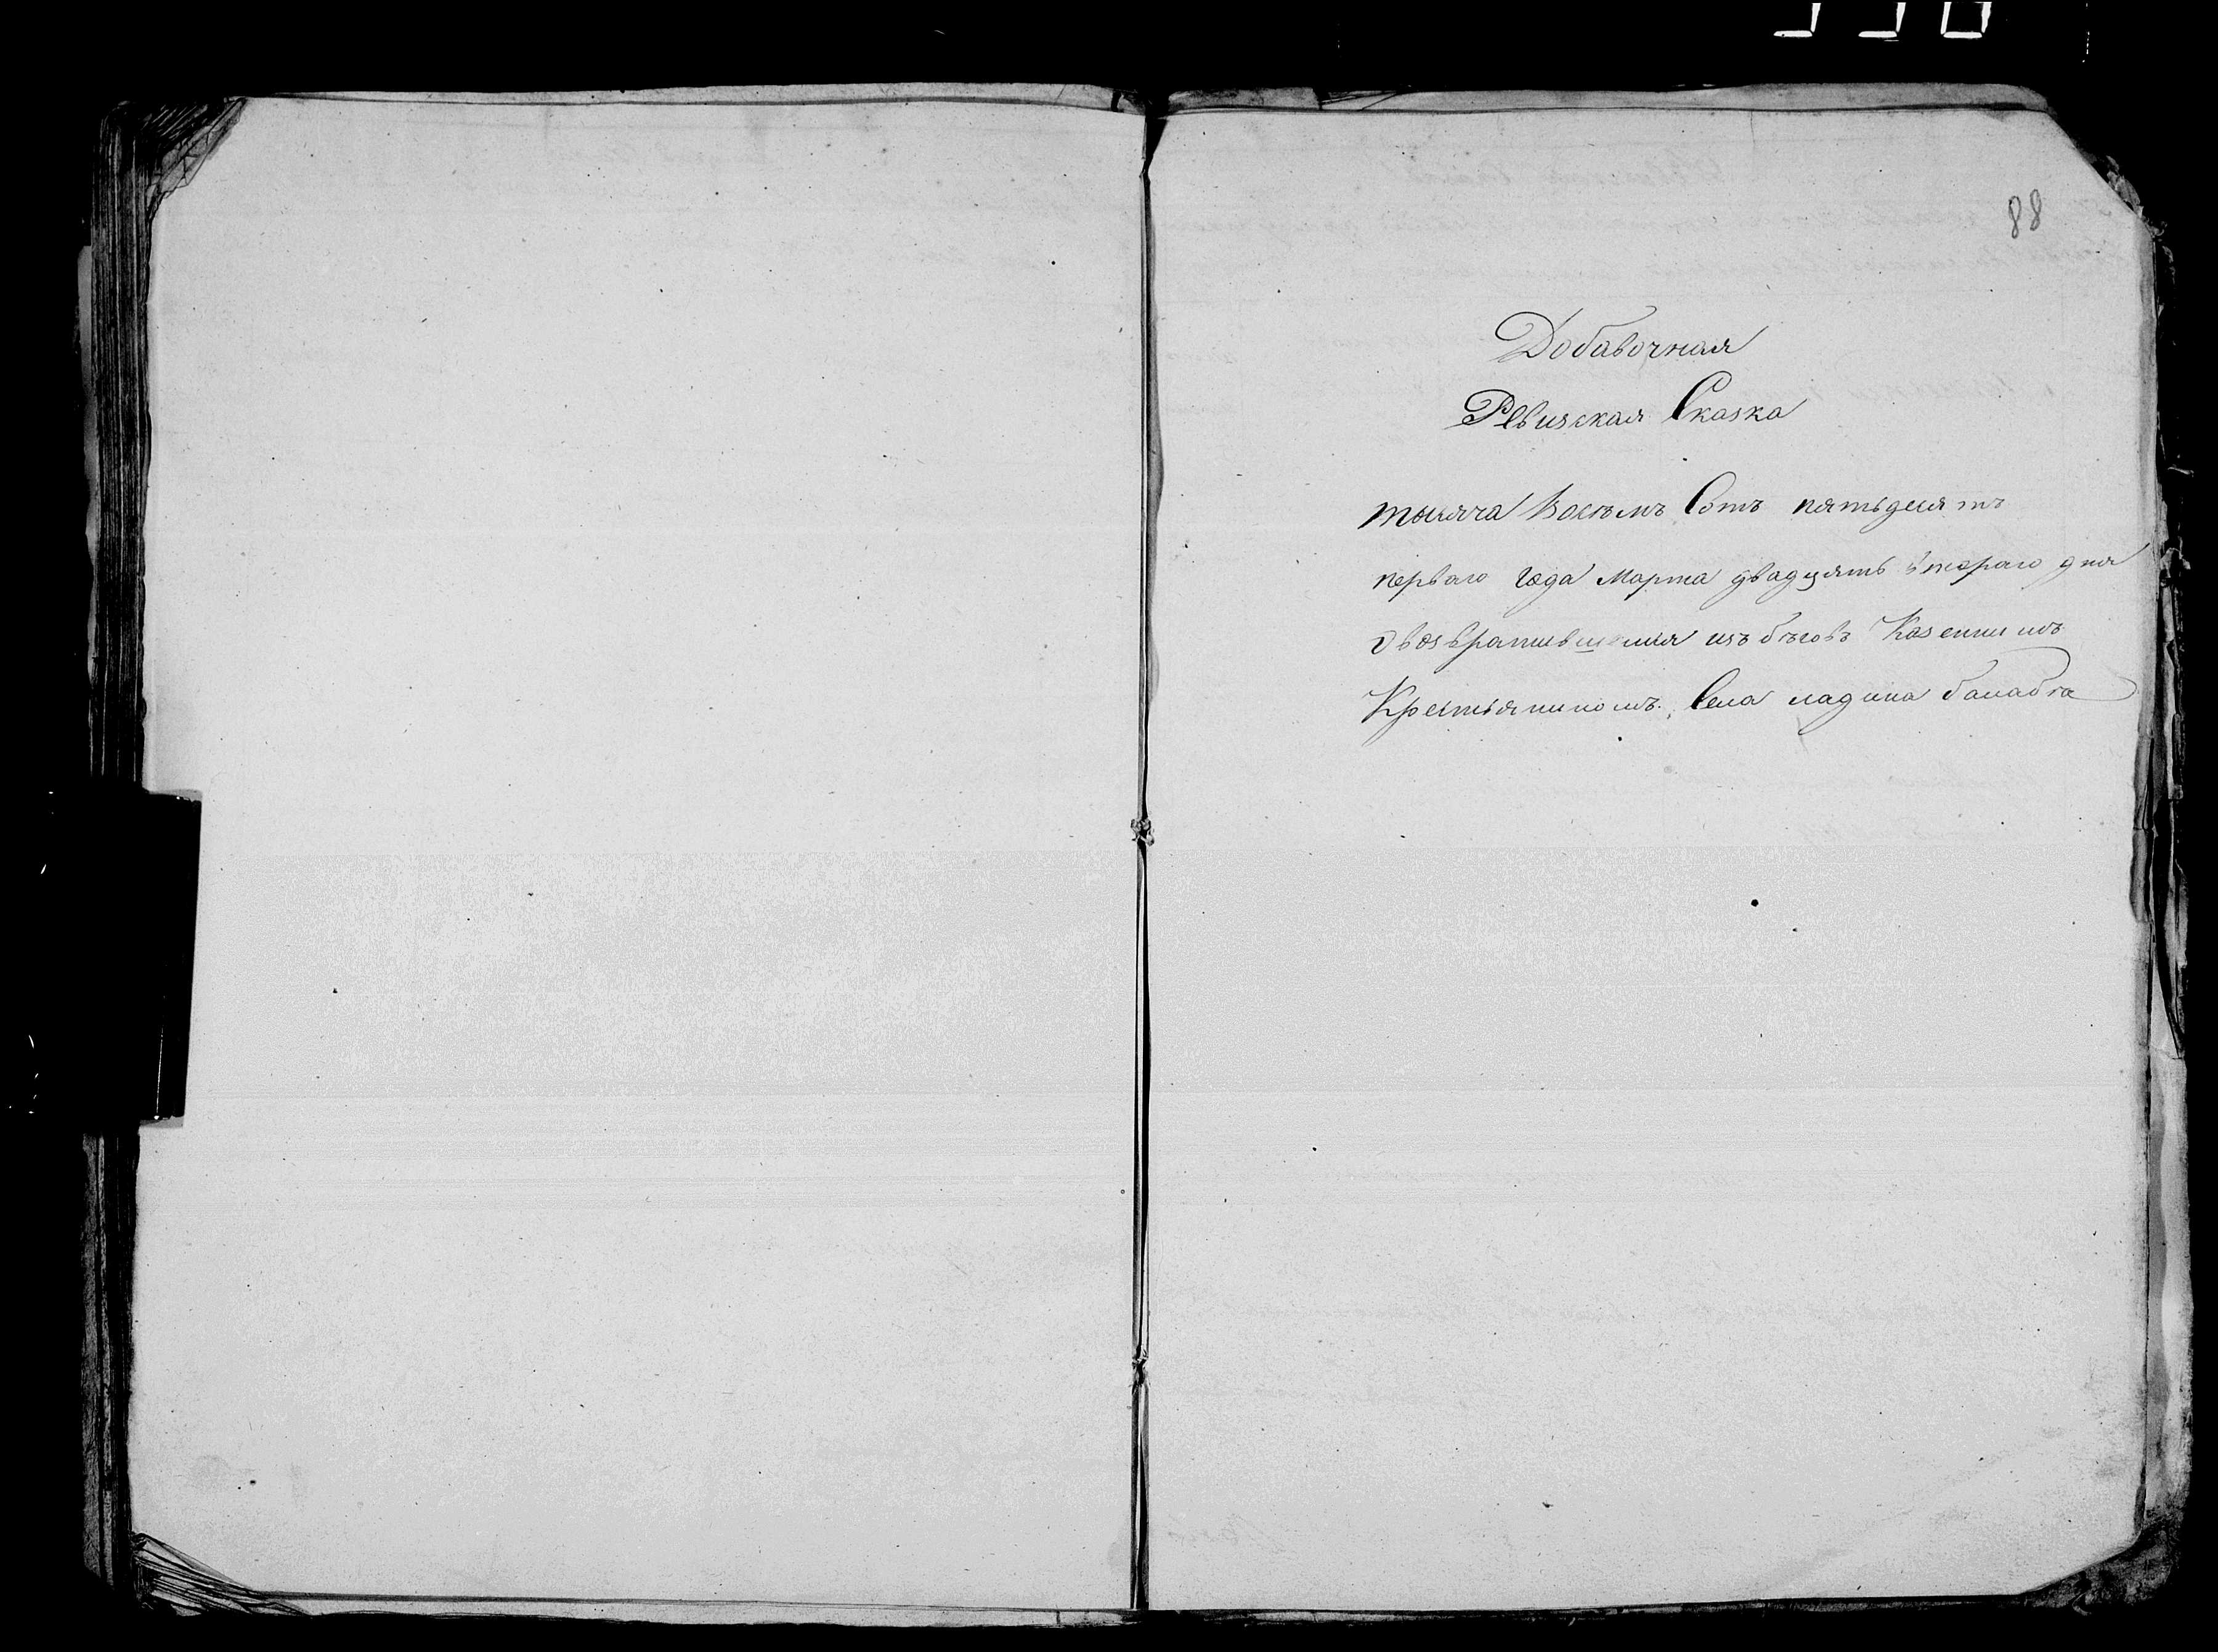 88
Добавочная
Ревизская Сказка
тысяча Восемъ Сотъ пятьдесятъ
перваго года Марта двадцять втораго дня
Овозвратившемся изъ бѣговъ Казеннимъ
Крестьяниномъ. Села ладина